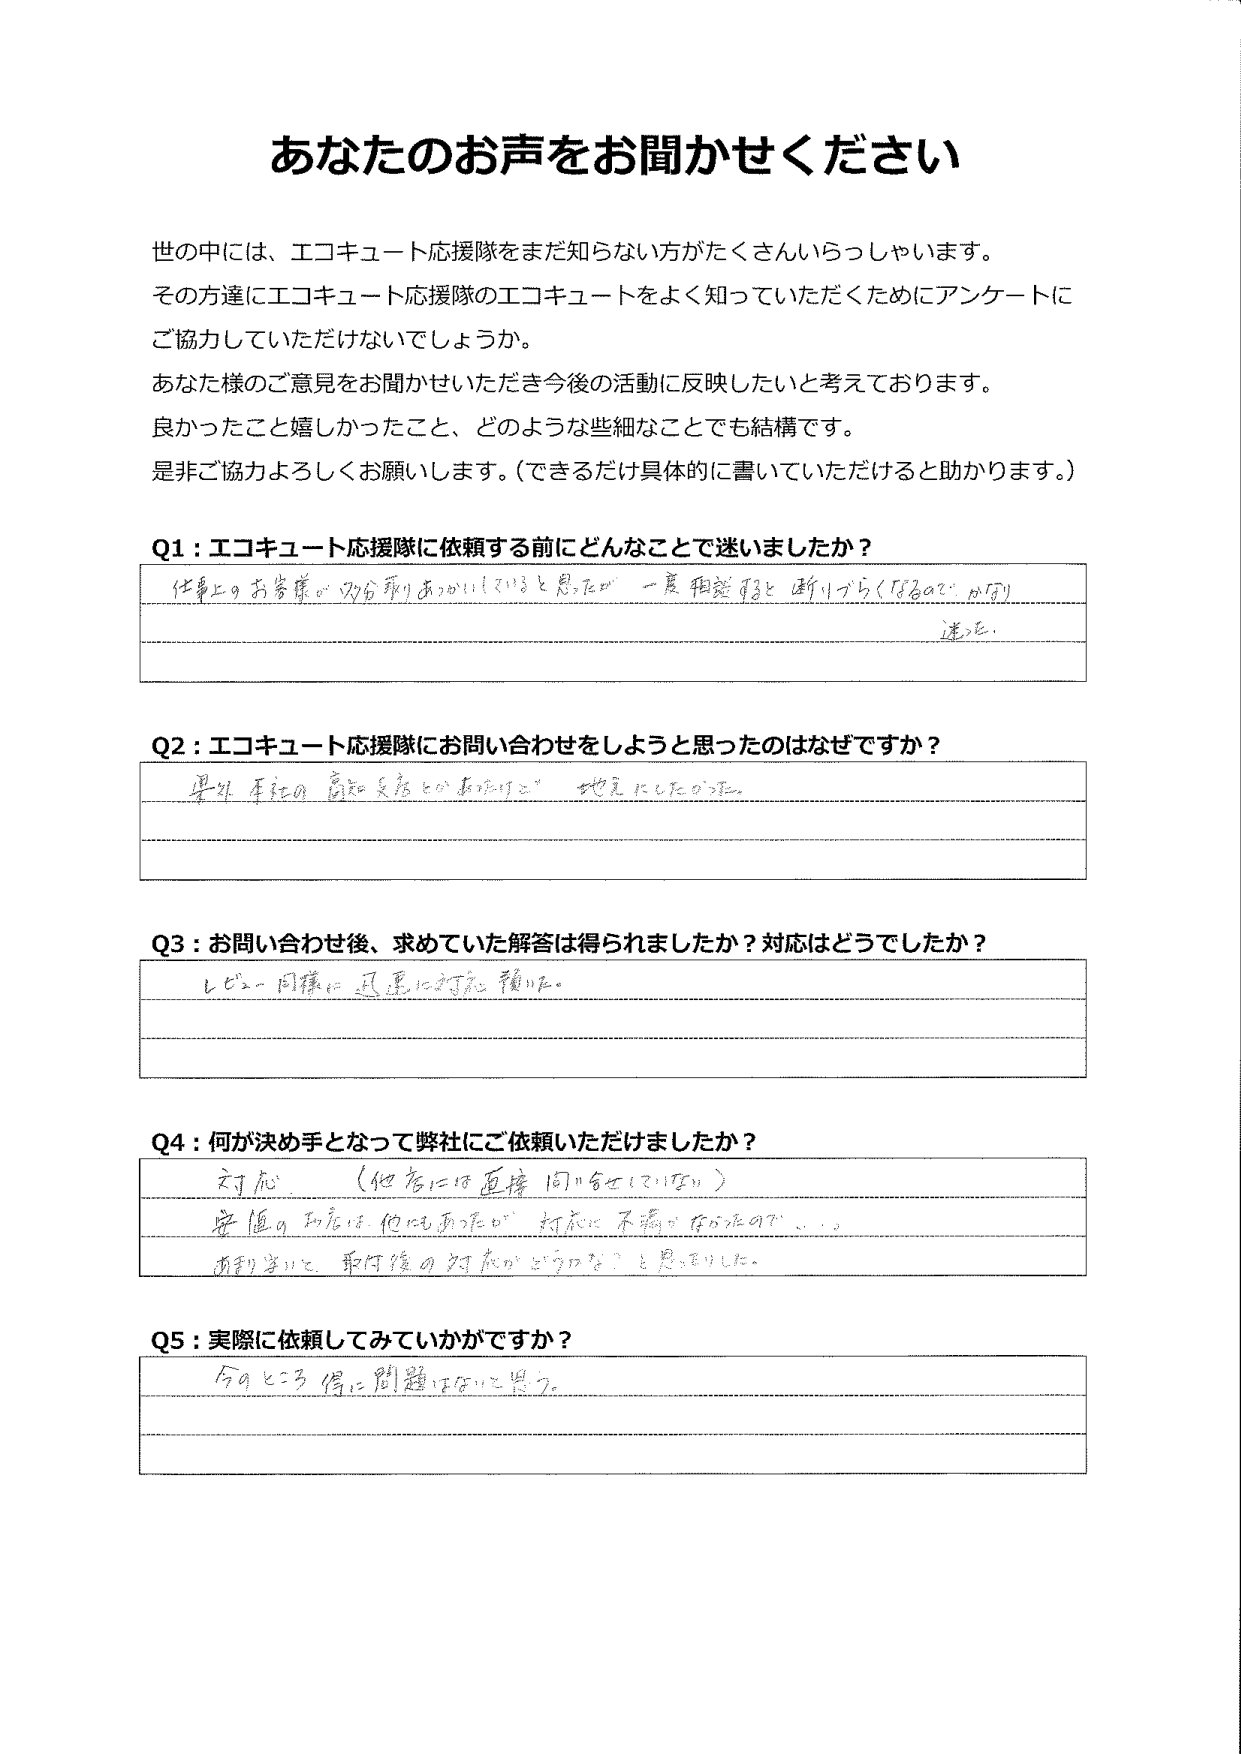 あなたのお声をお聞かせください
世の中には、エコキュート応援隊をまだ知らない方がたくさんいらっしゃいます。
その方達にエコキュート応援隊のエコキュートをよく知っていただくためにアンケートに
ご協力していただけないでしょうか。
あなた様のご意見をお聞かせいただき今後の活動に反映したいと考えております。
良かったこと嬉しかったこと、どのような些細なことでも結構です。
是非ご協力よろしくお願いします。（できるだけ具体的に書いていただけると助かります。）
Q1：エコキュート応援隊に依頼する前にどんなことで迷いましたか？
仕事上のお客様が多分取りあつかいしていると思ったが 一度相談すると断りづらくなるので かなり
迷った.
Q2：エコキュート応援隊にお問い合わせをしようと思ったのはなぜですか？
県外本社の高知支店とかあったけど 地元にしたかった。
Q3：お問い合わせ後、求めていた解答は得られましたか？対応はどうでしたか？
レビュー同様に迅速に対応頂いた。
Q4：何が決め手となって弊社にご依頼いただけましたか？
対応 （他店には直接問い合せしていない）
安値のお店は他にもあったが 対応に不満がなかったので...。
あまり安いと 取付後の対応がどうかな？と思いました。
Q5：実際に依頼してみていかがですか？
今のところ得に問題はないと思う。